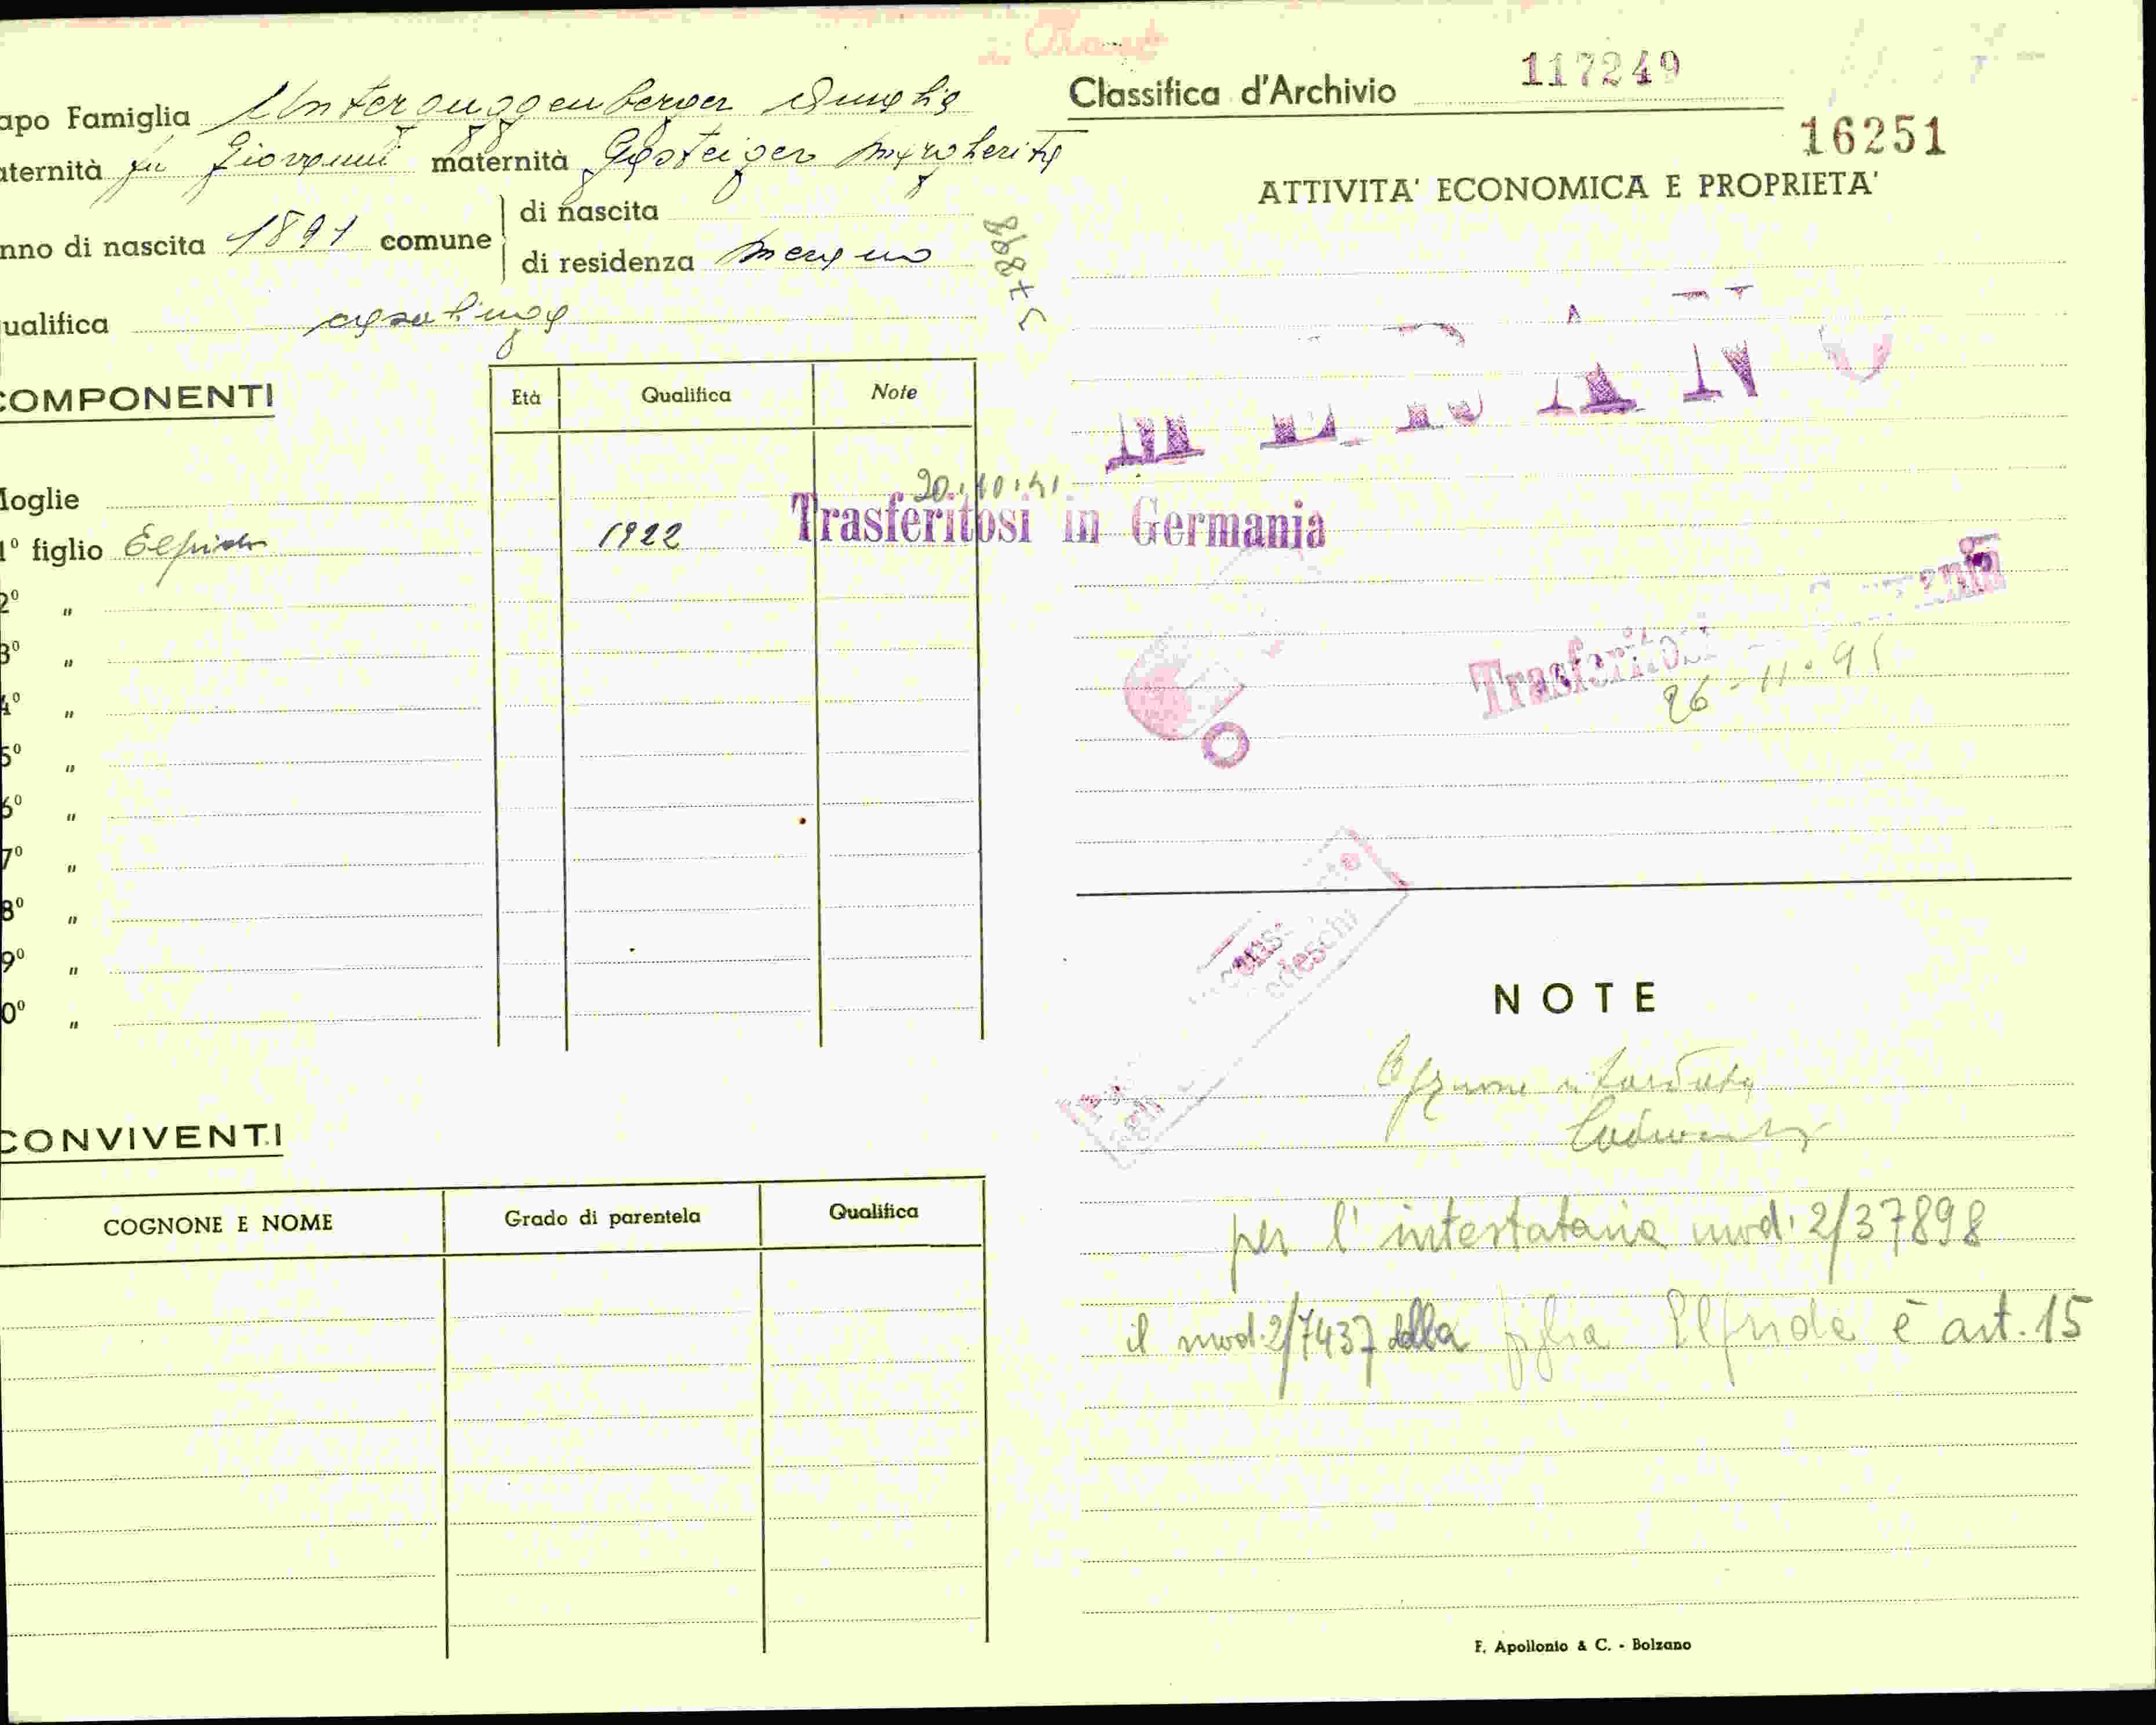 117249
Classifica d'Archivio
16251
apo Famiglia Unterguggenberger Amalia
aternità fu Giovanni maternità Gasteiger Margherita
nno di nascita 1891 comune di nascita
di residenza Merano
37898
ualifica casalinga
ATTIVITA' ECONOMICA E PROPRIETA'
COMPONENTI
Età Qualifica Note
Moglie
20.10.41
Trasferitosi in Germania
1° figlio Elfrida 1922
2° "
3° "
4° "
5° "
6° "
7° "
8° "
9° "
0° "
Trasferitosi
26-11-
NOTE
per l'intestataria mod. 2/37898
il mod. 2/7437 della figlia Elfrida è art. 15
CONVIVENTI
COGNONE E NOME Grado di parentela Qualifica
F. Apollonio & C. - Bolzano